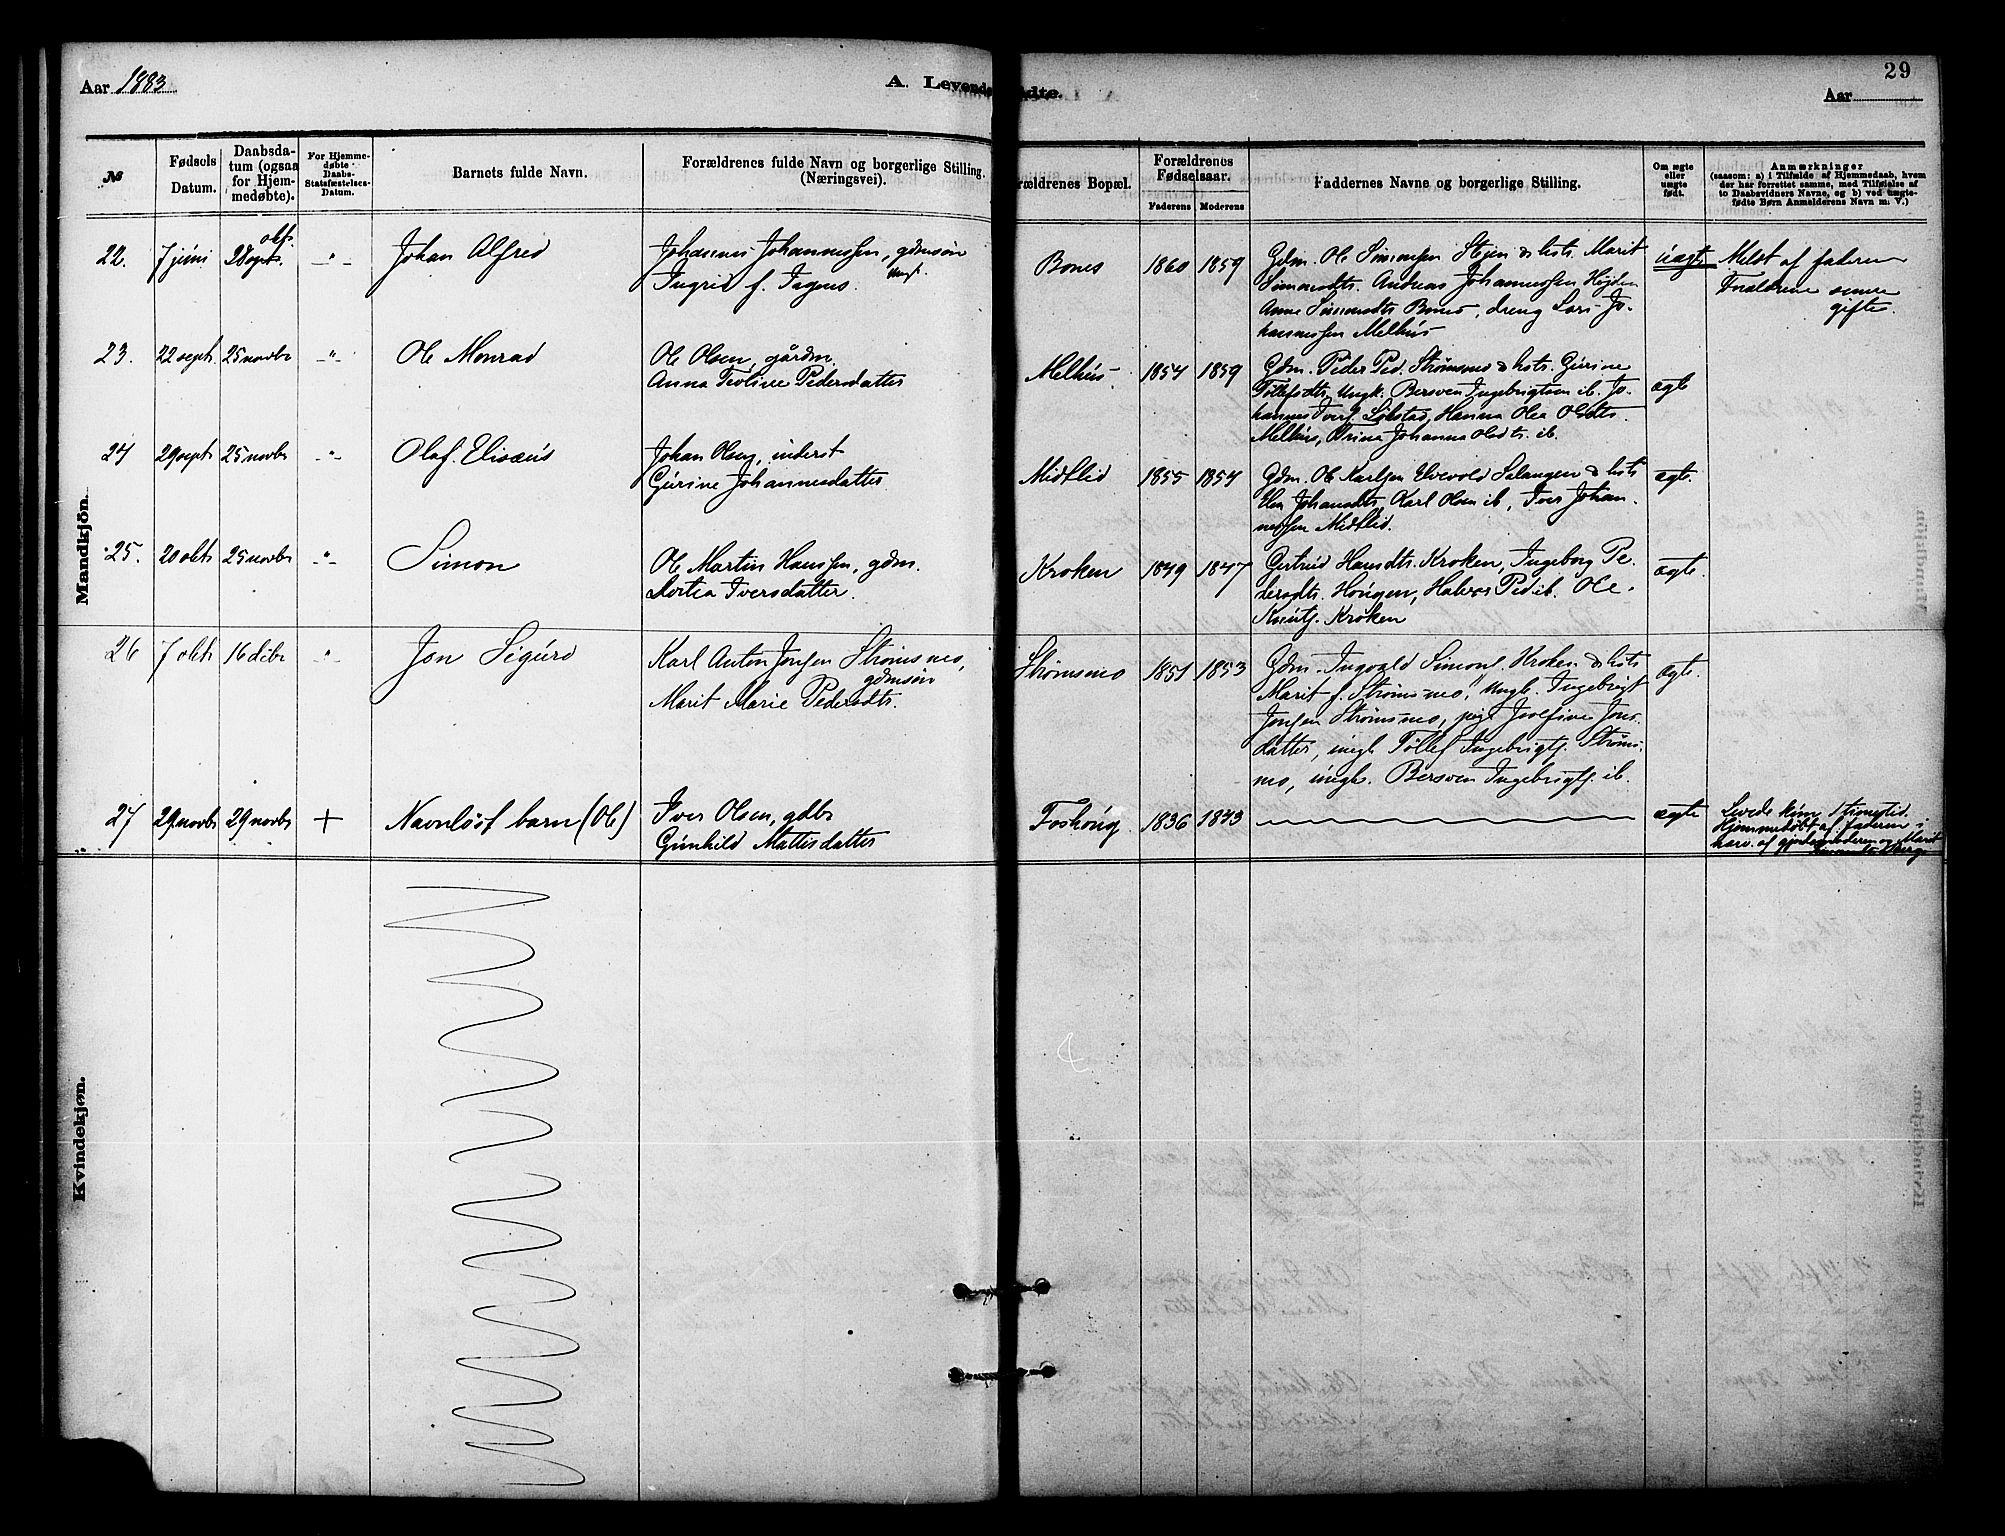 Aar 1883
A. Levende
fødte.
29
Aar
№
Fødsels Datum.
Daabsda-
tum (ogsaa
for Hjem-
medøbte).
For Hjemme-
døbte
Daabs-
Stadfæstelses-
Datum.
Barnets fulde Navn.
Forældrenes fulde Navn og borgerlige Stilling.
(Næringsvei).
Forældrenes Bopæl.
Forældrenes
Fødselsaar.
Faderens
Moderens
Faddernes Navne og borgerlige Stilling.
Om ægte
eller
uægte
født.
Anmærkninger
(saasom: a) i Tilfælde af Hjemmedaab, hvem
der har forrettet samme, med Tilføielse af
to Daabsvidners Navne, og b) ved uægte-
fødte Børn Anmelderens Navn m. V.)
Mandkjön.
22.
7 juni
okt.
28 sept.
-"-
Johan Alfred
Johannes Johannessen, gdmsøn
Ingrid f. Ingens. ungk.
Bones
1860
1859
Gdm. Ole Simonsen Stjen & hst. Marit
Simonsdtr. Andreas Johannessen Højden
Anna Simonsdtr Bones, dreng Lars Jo-
hannessen Melhús
úægte
Melst af faderen
Forældrene senere
gifte.
23.
22 sept.
25 novbr
-"-
Ole Monrad
Ole Olsen, gårdm
Anna Teoline Pedersdatter
Melhús.
1854
1859
Gdm. Peder Ped. Strømsmo & hst. Gúrine
Tollefsdtr, Ungk. Bersven Ingebrigtsen ib. Jo-
hannes Ivers. Løkstad, Hanna Olea Olsdtr.
Melhús, Trina Johanna Olsdtr. ib.
ægte
24
29 sept
25 novbr
-"-
Olaf Eliseús
Johan Olsen, inderst
Gúrine Johannesdatter
Midtlid
1855
1854
Gdm. Ole Karlsen Elvevold Salangen & hst
Elen Johansdtr, Karl Olsen ib, Iver Johan-
nessen Midtlid.
ægte.
25.
20 okt
25 novbr
-"-
Simon
Ole Martin Hanssen, gdm.
Dortea Iversdatter.
Kroken
1849
1847
Gertrúd Hansdtr. Kroken, Ingeborg Pe-
dersdtr. Höúgen, Halvor Ped ib. Ole
Knúts. Kroken
ægte.
26
7 okt
16 debr
-"-
Jon Sigúrd
Karl Anton Jonsen Strømsmo,
gdmsøn
Marit Marie Pedersdtr.
Strømsmo
1851
1853
Gdm. Ingvald Simons. Kroken & hst
Marit f. Strømsmo, Ungk. Ingebrigt
Jonsen Strømsmo, pige Josefine Jons-
datter, úngk Tollef Ingebrigts. Strøms-
mo, úngk. Bersven Ingebrigts. ib.
ægte.
27
29 novbr
29 novbr
+
Navnløst barn (Ole)
Iver Olsen, gdbr
Gúnhild Mattisdatter
Foshoúg
1836
1843
ægte
Levede kún 1 timestid.
Hjemmedøbt af faderen i
nærv. af gjordemoderen og Marit
Kvindekjøn.